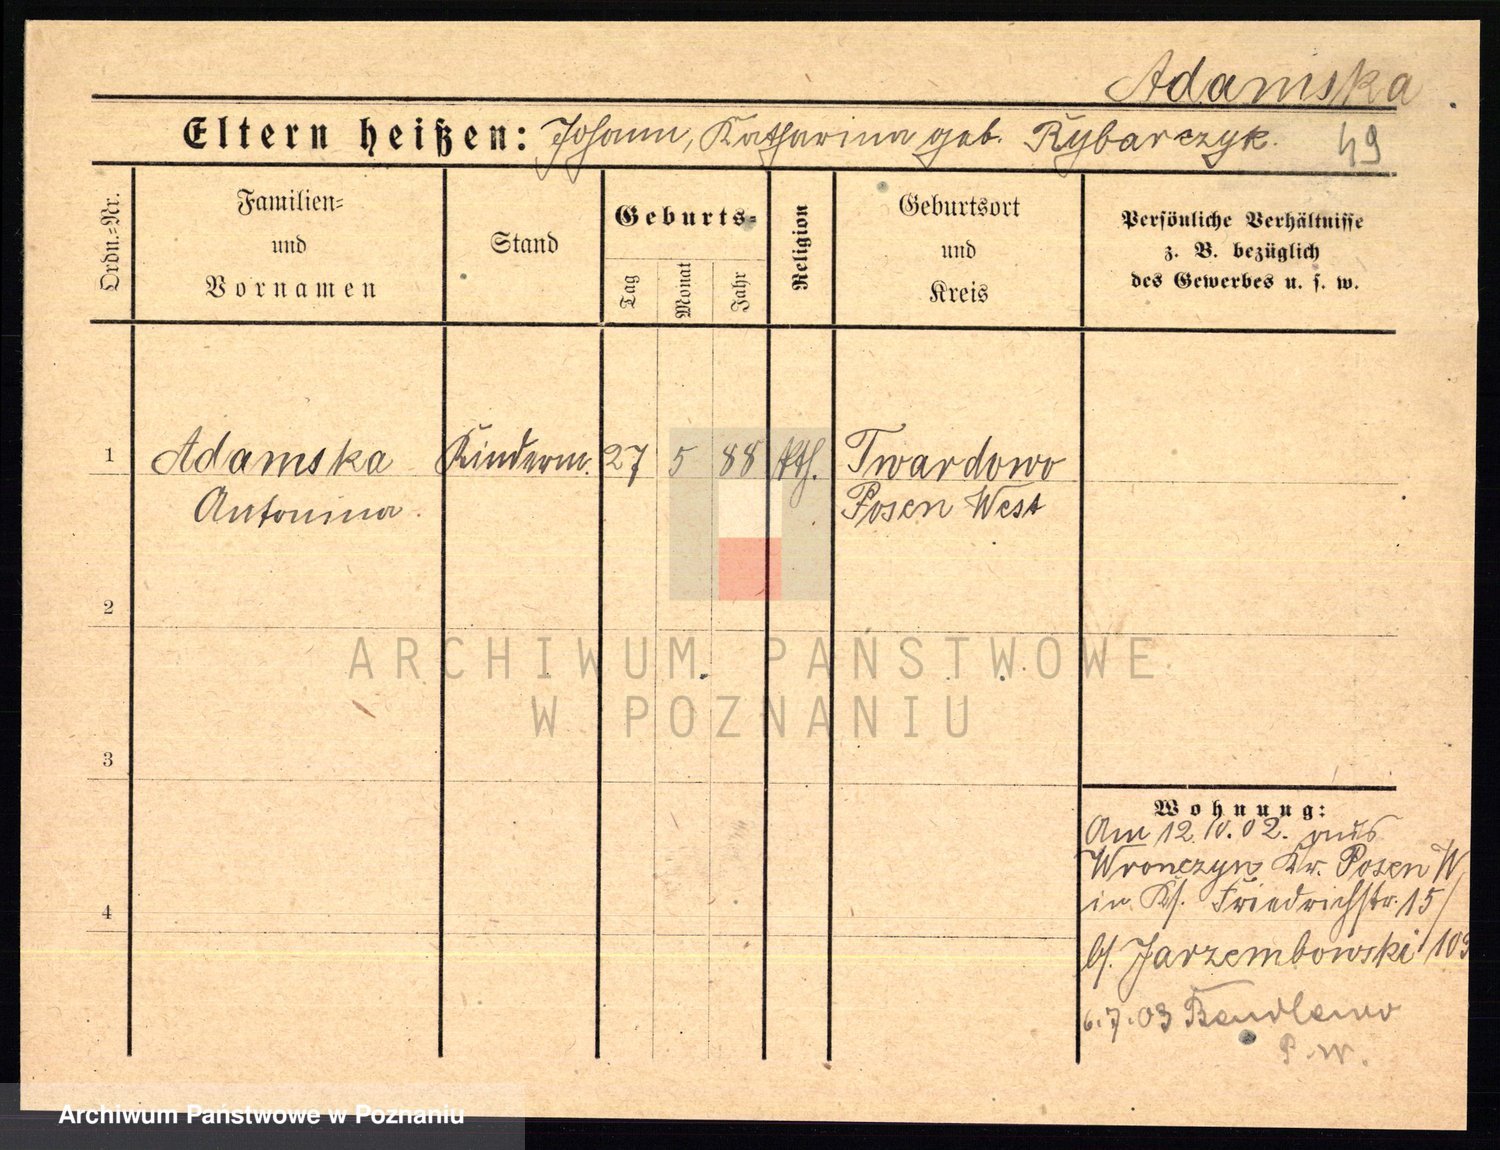 Adamska
Eltern heißen: Johann, Katharina geb. Rybarczyk.
49
Ordn.=Nr.
Familien=
und
Vornamen
Stand
Geburts=
Tag
Monat
Jahr
Religion
Geburtsort
und
Kreis
Persönliche Verhältnisse
z. B. bezüglich
des Gewerbes u. s. w.
1 Adamska Kinderm. 27 5 88 kth. Twardowo
Antonina Posen West
2
ARCHIWUM PAŃSTWOWE
W POZNANIU
3
Wohnung:
Am 12.10.02. aus
Wronczyn Kr. Posen W
in Ks. Friedrichstr. 15/
4
bs. Jarzembowski 103
6.7.03 Bendlewo
P. W.
Archiwum Państwowe w Poznaniu